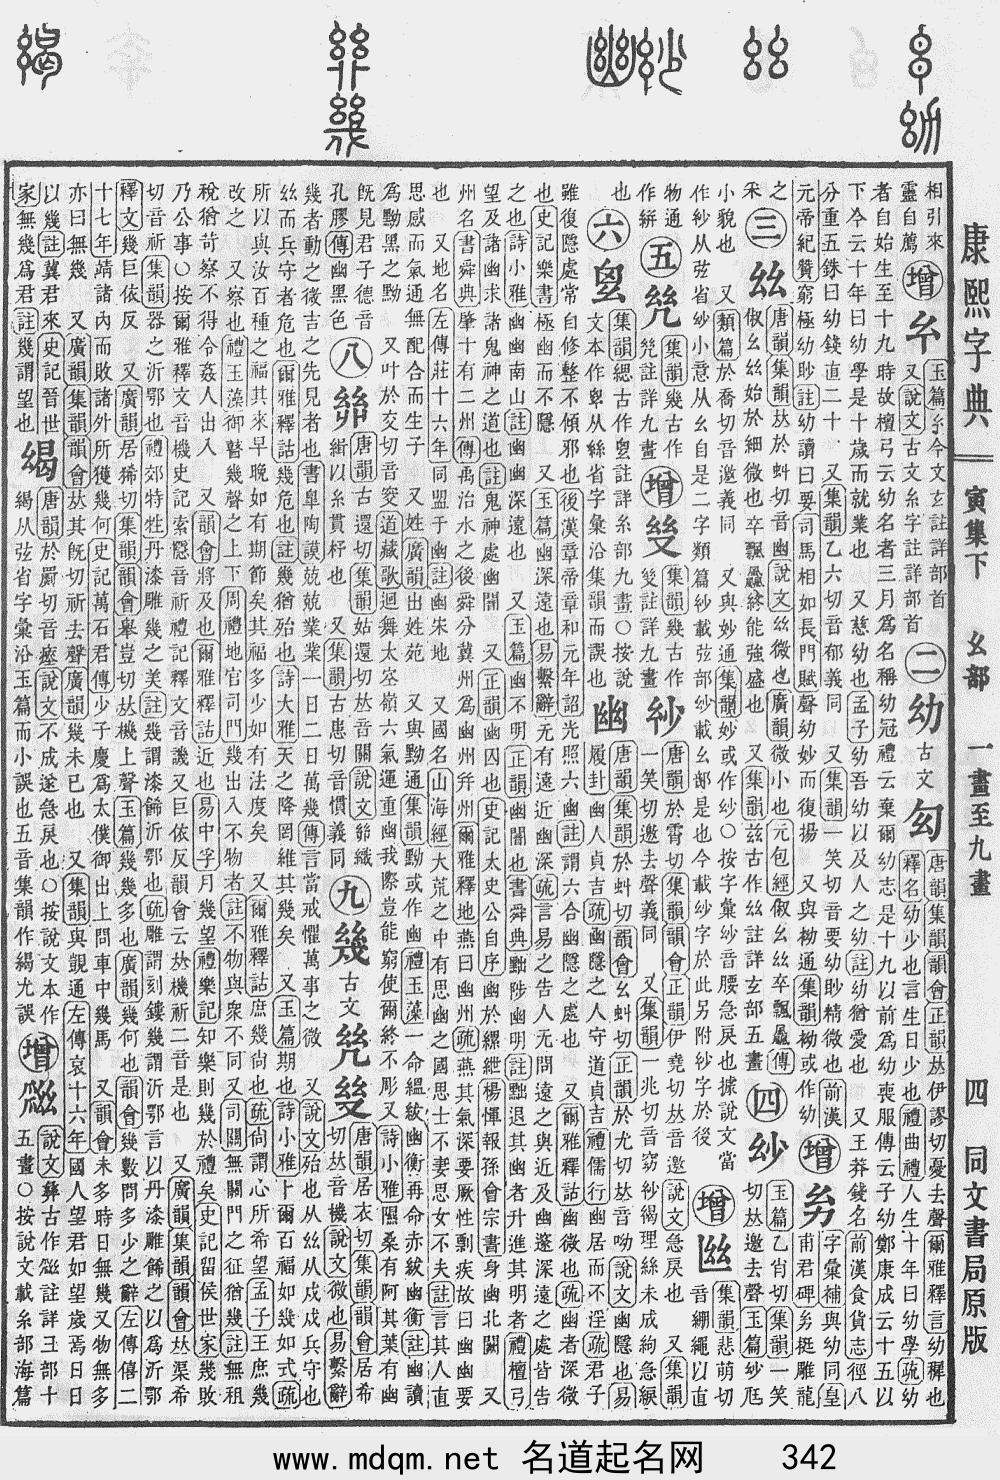 康熙字典 寅集下 幺部 一畫至九畫 四 同文書局原版
相引來
靈自薦
增
玉篇
今文玄註詳部首
又說文古文糸字註詳部首
二 幼 古文
唐韻集韻韻會正韻𠀤伊謬切憂去聲爾雅釋言幼穉也
釋名幼少也言生日少也禮曲禮人生十年曰幼學疏幼
者自始生至十九時故檀弓云幼名者三月爲名稱幼冠禮云棄爾幼志是十九以前爲幼喪服傳云子幼鄭康成云十五以
下今云十年曰幼學是十歲而就業也 又慈幼也孟子幼吾幼以及人之幼註幼猶愛也 又王莽錢名前漢食貨志徑八
分重五銖曰幼錢直二十 又集韻乙六切音郁義同 又集韻一笑切音要幼眇精微也前漢
元帝紀贊窮極幼眇註幼讀曰要司馬相如長門賦聲幼妙而復揚 又與 通集韻 或作幼
增
字彙補與幼同皇
甫君碑 挺雕龍
之
采
三 𢆶
唐韻集韻𠀤於虯切音幽說文𢆶微也廣韻微小也元包經俶幺𢆶卒飄驫傳
俶幺𢆶始於細微也卒飄驫終能強盛也 又集韻茲古作𢆶註詳玄部五畫
四
玉篇乙肖切集韻一笑
切𠀤邀去聲玉篇 尫
小貌也 又類篇於喬切音邀義同 又與妙通集韻妙或作 ○按字彙 音腰急戾也據說文當
作 从弦省 小意从幺自是二字類篇 載弦部 載幺部是也今載 字於此另附 字於後
增
集韻悲萌切
音繃繩以直
物通
作絣
五
集韻幾古作
註詳九畫
增
集韻幾古作
註詳九畫
唐韻於霄切集韻韻會正韻伊堯切𠀤音邀說文急戾也 又集韻
一笑切邀去聲義同 又集韻一兆切音窈 緆理絲未成絇急綟
也
六
集韻緦古作 註詳糸部九畫○按說
文本作 从絲省字彙沿集韻而誤也
幽
唐韻集韻於虯切韻會幺虯切正韻於尤切𠀤音呦說文幽隱也易
履卦幽人貞吉疏幽隱之人守道貞吉禮儒行幽居而不淫疏君子
雖復隱處常自修整不傾邪也後漢章帝章和元年詔光照六幽註謂六合幽隱之處也 又爾雅釋詁幽微也疏幽者深微
也史記樂書極幽而不隱 又玉篇幽深遠也易繫辭无有遠近幽深疏言易之告人无問遠之與近及幽邃深遠之處皆告
之也詩小雅幽幽南山註幽幽深遠也 又玉篇幽不明正韻幽闇也書舜典黜陟幽明註黜退其幽者升進其明者禮檀弓
望及諸幽求諸鬼神之道也註鬼神處幽闇 又正韻幽囚也史記太史公自序幽於縲紲楊惲報孫會宗書身幽北闕 又
州名書舜典肇十有二州傳禹治水之後舜分冀州爲幽州幷州爾雅釋地燕曰幽州疏燕其氣深要厥性剽疾故曰幽幽要
也 又地名左傳莊十六年同盟于幽註幽宋地 又國名山海經大荒之中有思幽之國思士不妻思女不夫註言其人直
思感而氣通無配合而生子 又姓廣韻出姓苑 又與黝通集韻黝或作幽禮玉藻一命縕韍幽衡再命赤韍幽衡註幽讀
爲黝黑之黝 又叶於交切音窔道藏歌迴舞太寥嶺六氣運重幽我際豈能窮使爾終不彫又詩小雅隰桑有阿其葉有幽
旣見君子德音
孔膠傳幽黑色
八
唐韻古還切集韻姑還切𠀤音關說文 織
緝以糸貫杼也 又集韻古患切音慣義同
九 幾 古文
唐韻居衣切集韻韻會居希
切𠀤音機說文微也易繫辭
幾者動之微吉之先見者也書皐陶謨兢兢業業一日二日萬幾傳言當戒懼萬事之微 又說文殆也从𢆶从戍戍兵守也
𢆶而兵守者危也爾雅釋詁幾危也註幾猶殆也詩大雅天之降罔維其幾矣 又玉篇期也詩小雅卜爾百福如幾如式疏
所以與汝百種之福其來早晚如有期節矣其福多少如有法度矣 又爾雅釋詁庶幾尙也疏尙謂心所希望孟子王庶幾
改之 又察也禮玉藻御瞽幾聲之上下周禮地官司門幾出入不物者註不物與衆不同又司關無關門之征猶幾註無租
稅猶苛察不得令姦人出入 又韻會將及也爾雅釋詁近也易中孚月幾望禮樂記知樂則幾於禮矣史記留侯世家幾敗
乃公事○按爾雅釋文音機史記索隱音祈禮記釋文音譏又巨依反韻會云𠀤機祈二音是也 又廣韻集韻韻會𠀤渠希
切音祈集韻器之沂鄂也禮郊特牲丹漆雕幾之美註幾謂漆飾沂鄂也疏雕謂刻鏤幾謂沂鄂言以丹漆雕飾之以爲沂鄂
釋文幾巨依反 又廣韻居狶切集韻韻會舉豈切𠀤機上聲玉篇幾幾多也廣韻幾何也韻會幾數問多少之辭左傳僖二
十七年靖諸內而敗諸外所獲幾何史記萬石君傳少子慶爲太僕御出上問車中幾馬 又韻會未多時曰無幾又物無多
亦曰無幾 又廣韻集韻韻會𠀤其旣切祈去聲廣韻幾未已也 又集韻與覬通左傳哀十六年國人望君如望歲焉日日
以幾註冀君來史記晉世
家無幾爲君註幾謂望也
唐韻於罽切音瘞說文不成遂急戾也○按說文本作
緆从弦省字彙沿玉篇而小誤也五音集韻作緆尤誤
增
說文彝古作 註詳彐部十
五畫○按說文載糸部海篇
www.mdqm.net 名道起名网 342